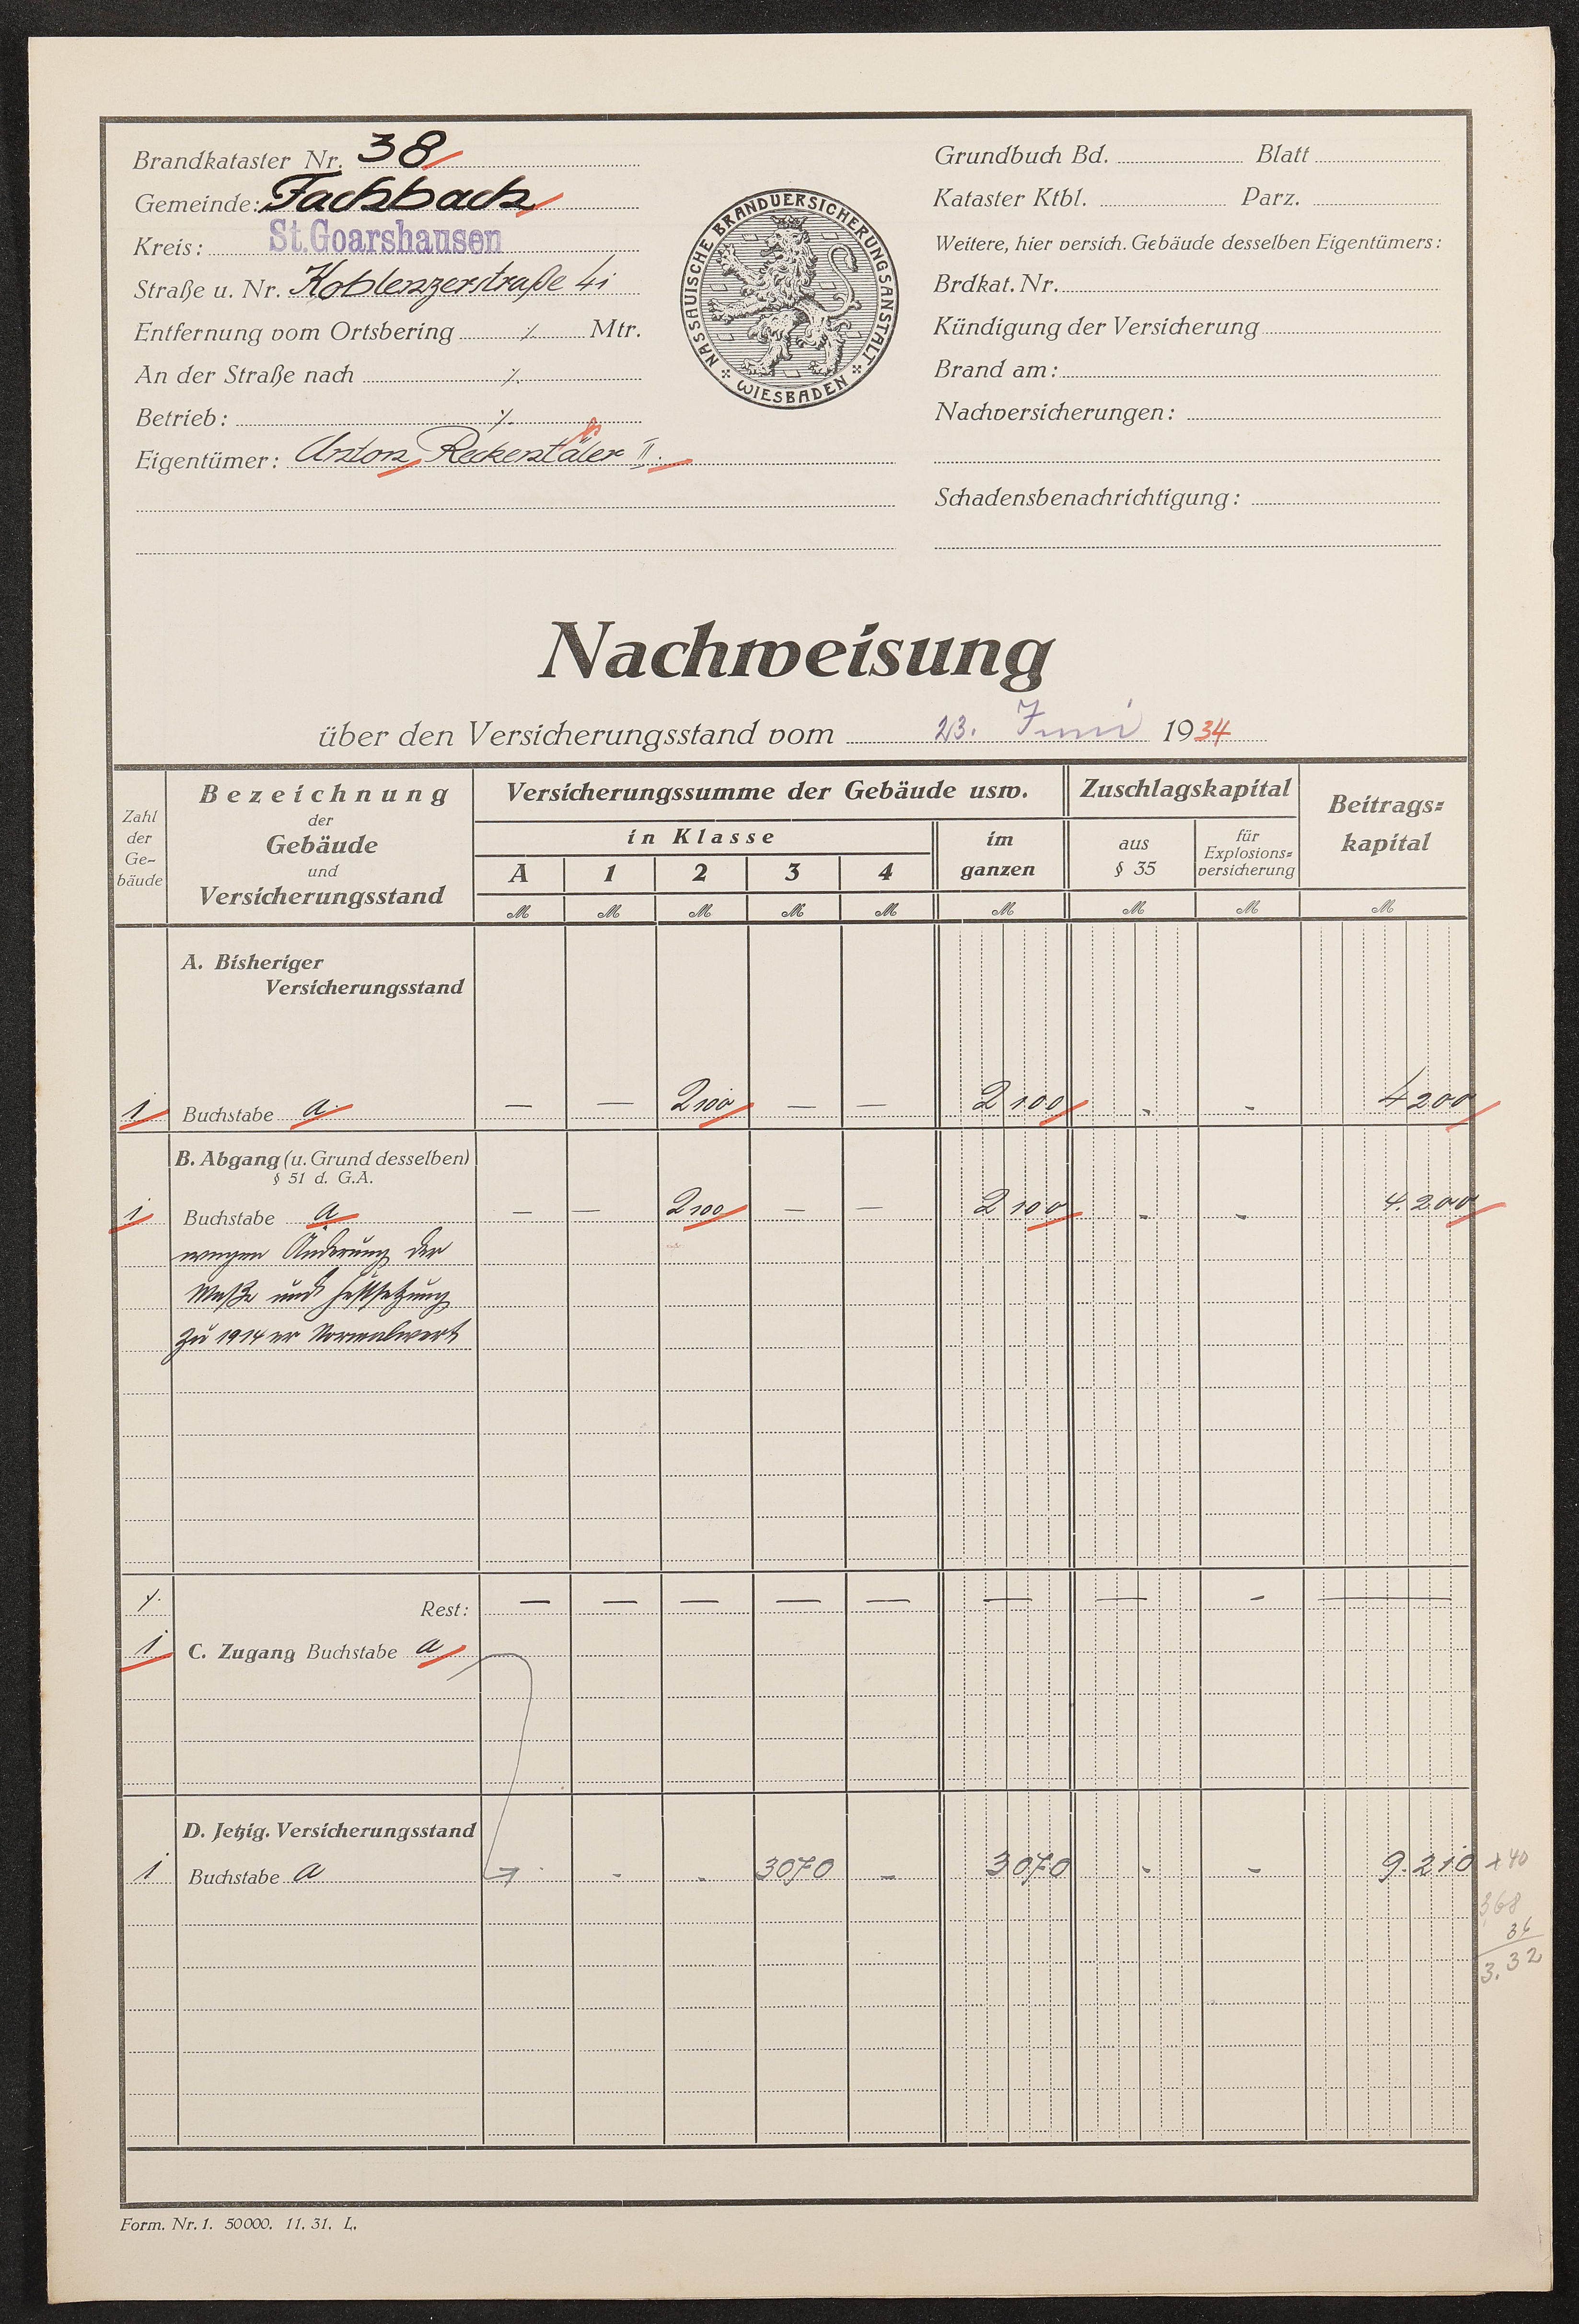 Brandkataster Nr. 38
Gemeinde: Fachbach
Kreis: St. Goarshausen
Straße u. Nr. Koblenzerstraße 41
Entfernung vom Ortsbering ./. Mtr.
An der Straße nach ./.
Betrieb: ./.
Eigentümer: Anton Reckentäler II.
NASSAUISCHE BRANDVERSICHERUNGSANSTALT
* WIESBADEN *
Grundbuch Bd. Blatt
Kataster Ktbl. Parz.
Weitere, hier versich. Gebäude desselben Eigentümers:
Brdkat. Nr.
Kündigung der Versicherung
Brand am:
Nachversicherungen:
Schadensbenachrichtigung:
Nachweisung
über den Versicherungsstand vom 23. Juni 1934
Zahl der Ge-bäude
Bezeichnung
der
Gebäude
und
Versicherungsstand
Versicherungssumme der Gebäude usw.
in Klasse
A 1 2 3 4
im ganzen
Zuschlagskapital
aus § 35
für Explosions=versicherung
Beitrags=kapital
M M M M M M M M M
A. Bisheriger
Versicherungsstand
1 Buchstabe a. — — 2100 — — 2100 - - 4200
B. Abgang (u. Grund desselben)
§ 51 d. G.A.
1 Buchstabe a — — 2100 — — 2100 - - 4.200
wegen Änderung der
Maße und Festsetzung
zu 1914er Normalwert
./. Rest: — — — — — — — - —
1 C. Zugang Buchstabe a
D. Jetzig. Versicherungsstand
1 Buchstabe a - - 3070 - 3070 - - 9.210 x 40
368
36
3.32
Form. Nr. 1. 50000. 11. 31. L.